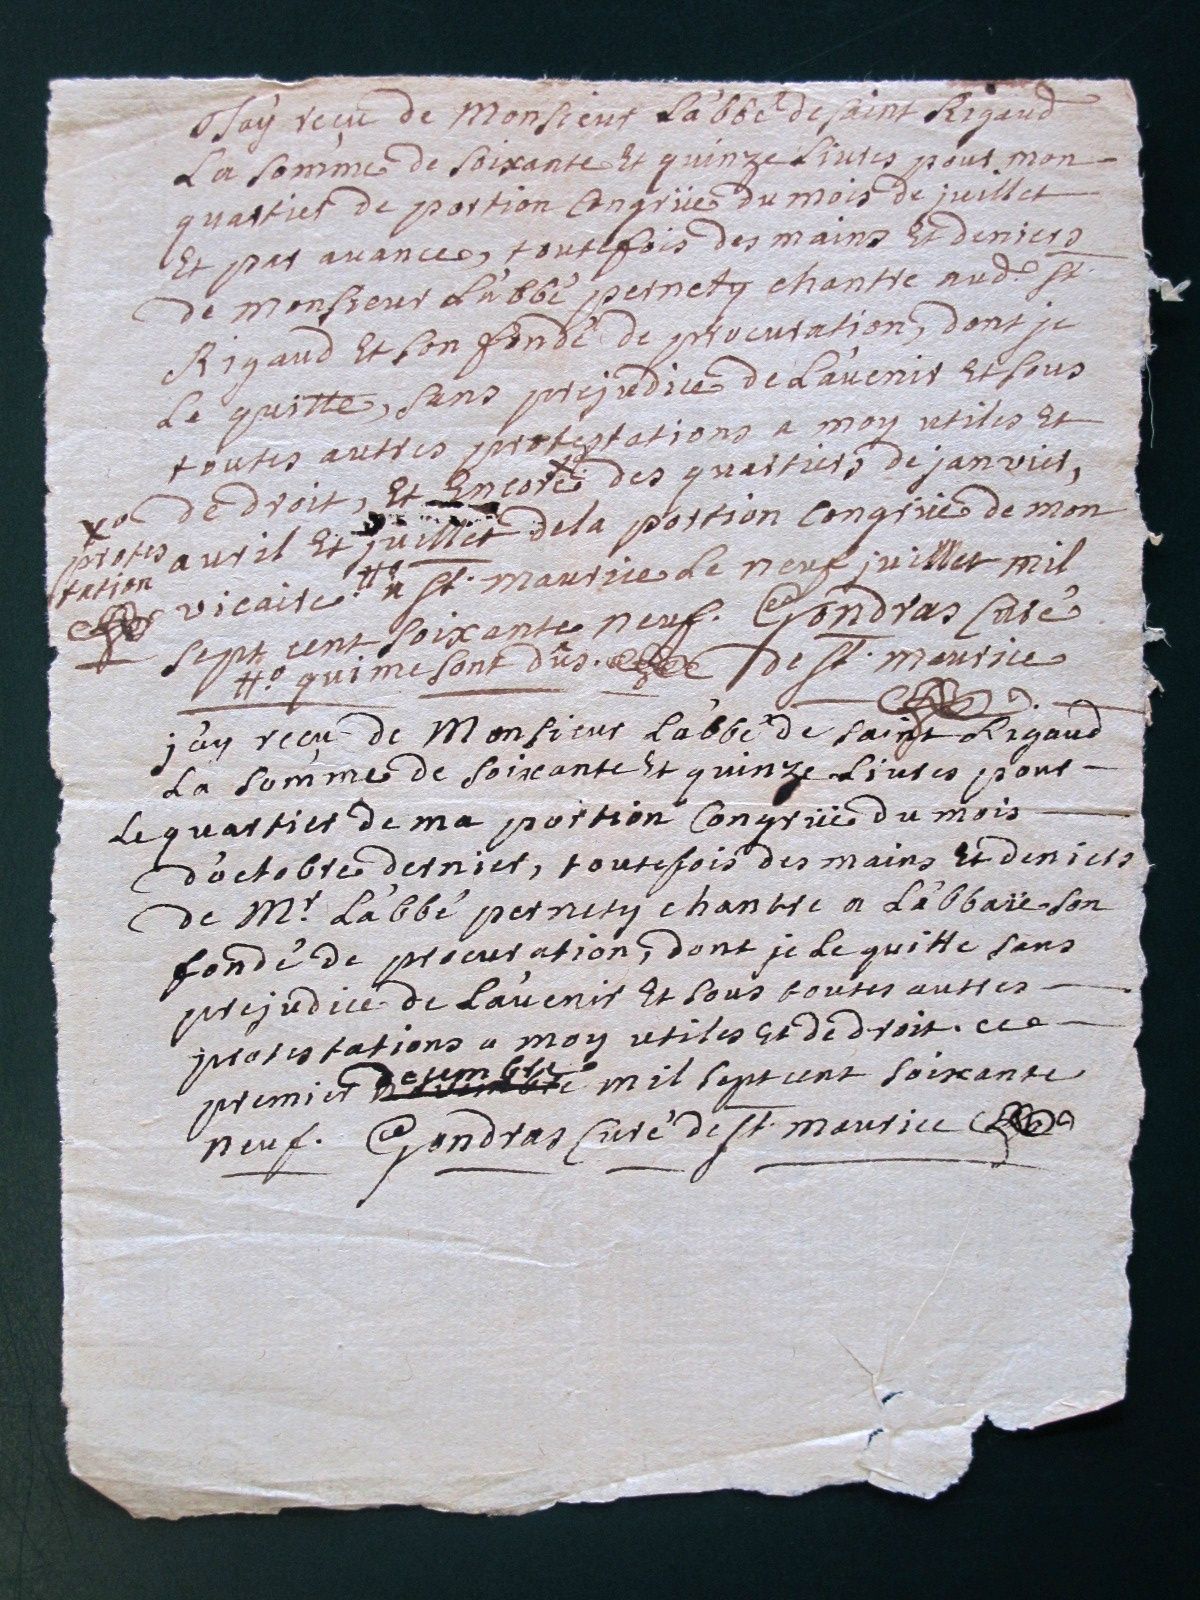 J'ay reçu de Monsieur L'abbé de saint Rigaud
La somme de soixante Et quinze Livres pour mon
quartier de portion Congrüe du mois de juillet
Et par avance, toutefois des mains Et deniers
de Monsieur L'abbé pernety chantre aud. St.
Rigaud Et son fondé de procuration, dont je
Le quitte, sans prejudice de L'avenir Et sous
toutes autres protestations a moy utiles Et
de droit, Et Encore xo des quartiers de janvier,
xo protes
tation
avril Et juillet de la portion Congrüe de mon
vicaire. #o a St. maurice Le neuf juillet mil
sept cent soixante neuf. Gondras Curé
#o qui me sont dûs. de St. maurice
j'ay reçu de Monsieur L'abbé de saint Rigaud
La somme de soixante Et quinze Livres pour
Le quartier de ma portion Congrüe du mois
d'octobre dernier, toutefois des mains Et deniers
de Mr. L'abbé pernety chantre a L'abbaïe son
fondé de procuration, dont je Le quitte sans
prejudice de L'avenir Et sous toutes autres
protestations a moy utiles Et de droit. ce
premier decembre mil sept cent soixante
neuf. Gondras Curé de St. maurice